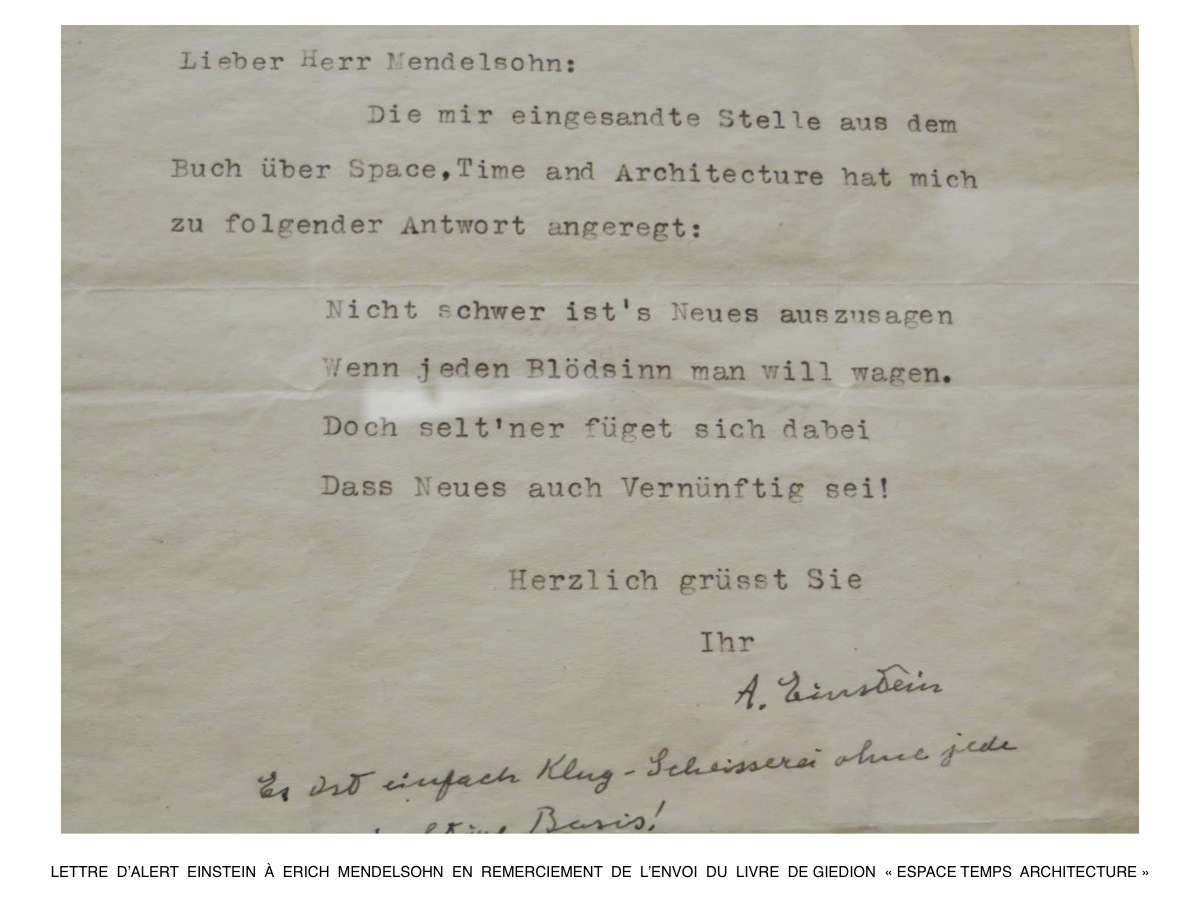 Lieber Herr Mendelsohn:
Die mir eingesandte Stelle aus dem
Buch über Space,Time and Architecture hat mich
zu folgender Antwort angeregt:
Nicht schwer ist's Neues auszusagen
Wenn jeden Blödsinn man will wagen.
Doch selt'ner füget sich dabei
Dass Neues auch Vernünftig sei!
Herzlich grüsst Sie
Ihr
A. Einstein
Es ist einfach Klug-Scheisserei ohne jede
Basis!
LETTRE D'ALERT EINSTEIN À ERICH MENDELSOHN EN REMERCIEMENT DE L'ENVOI DU LIVRE DE GIEDION « ESPACE TEMPS ARCHITECTURE »